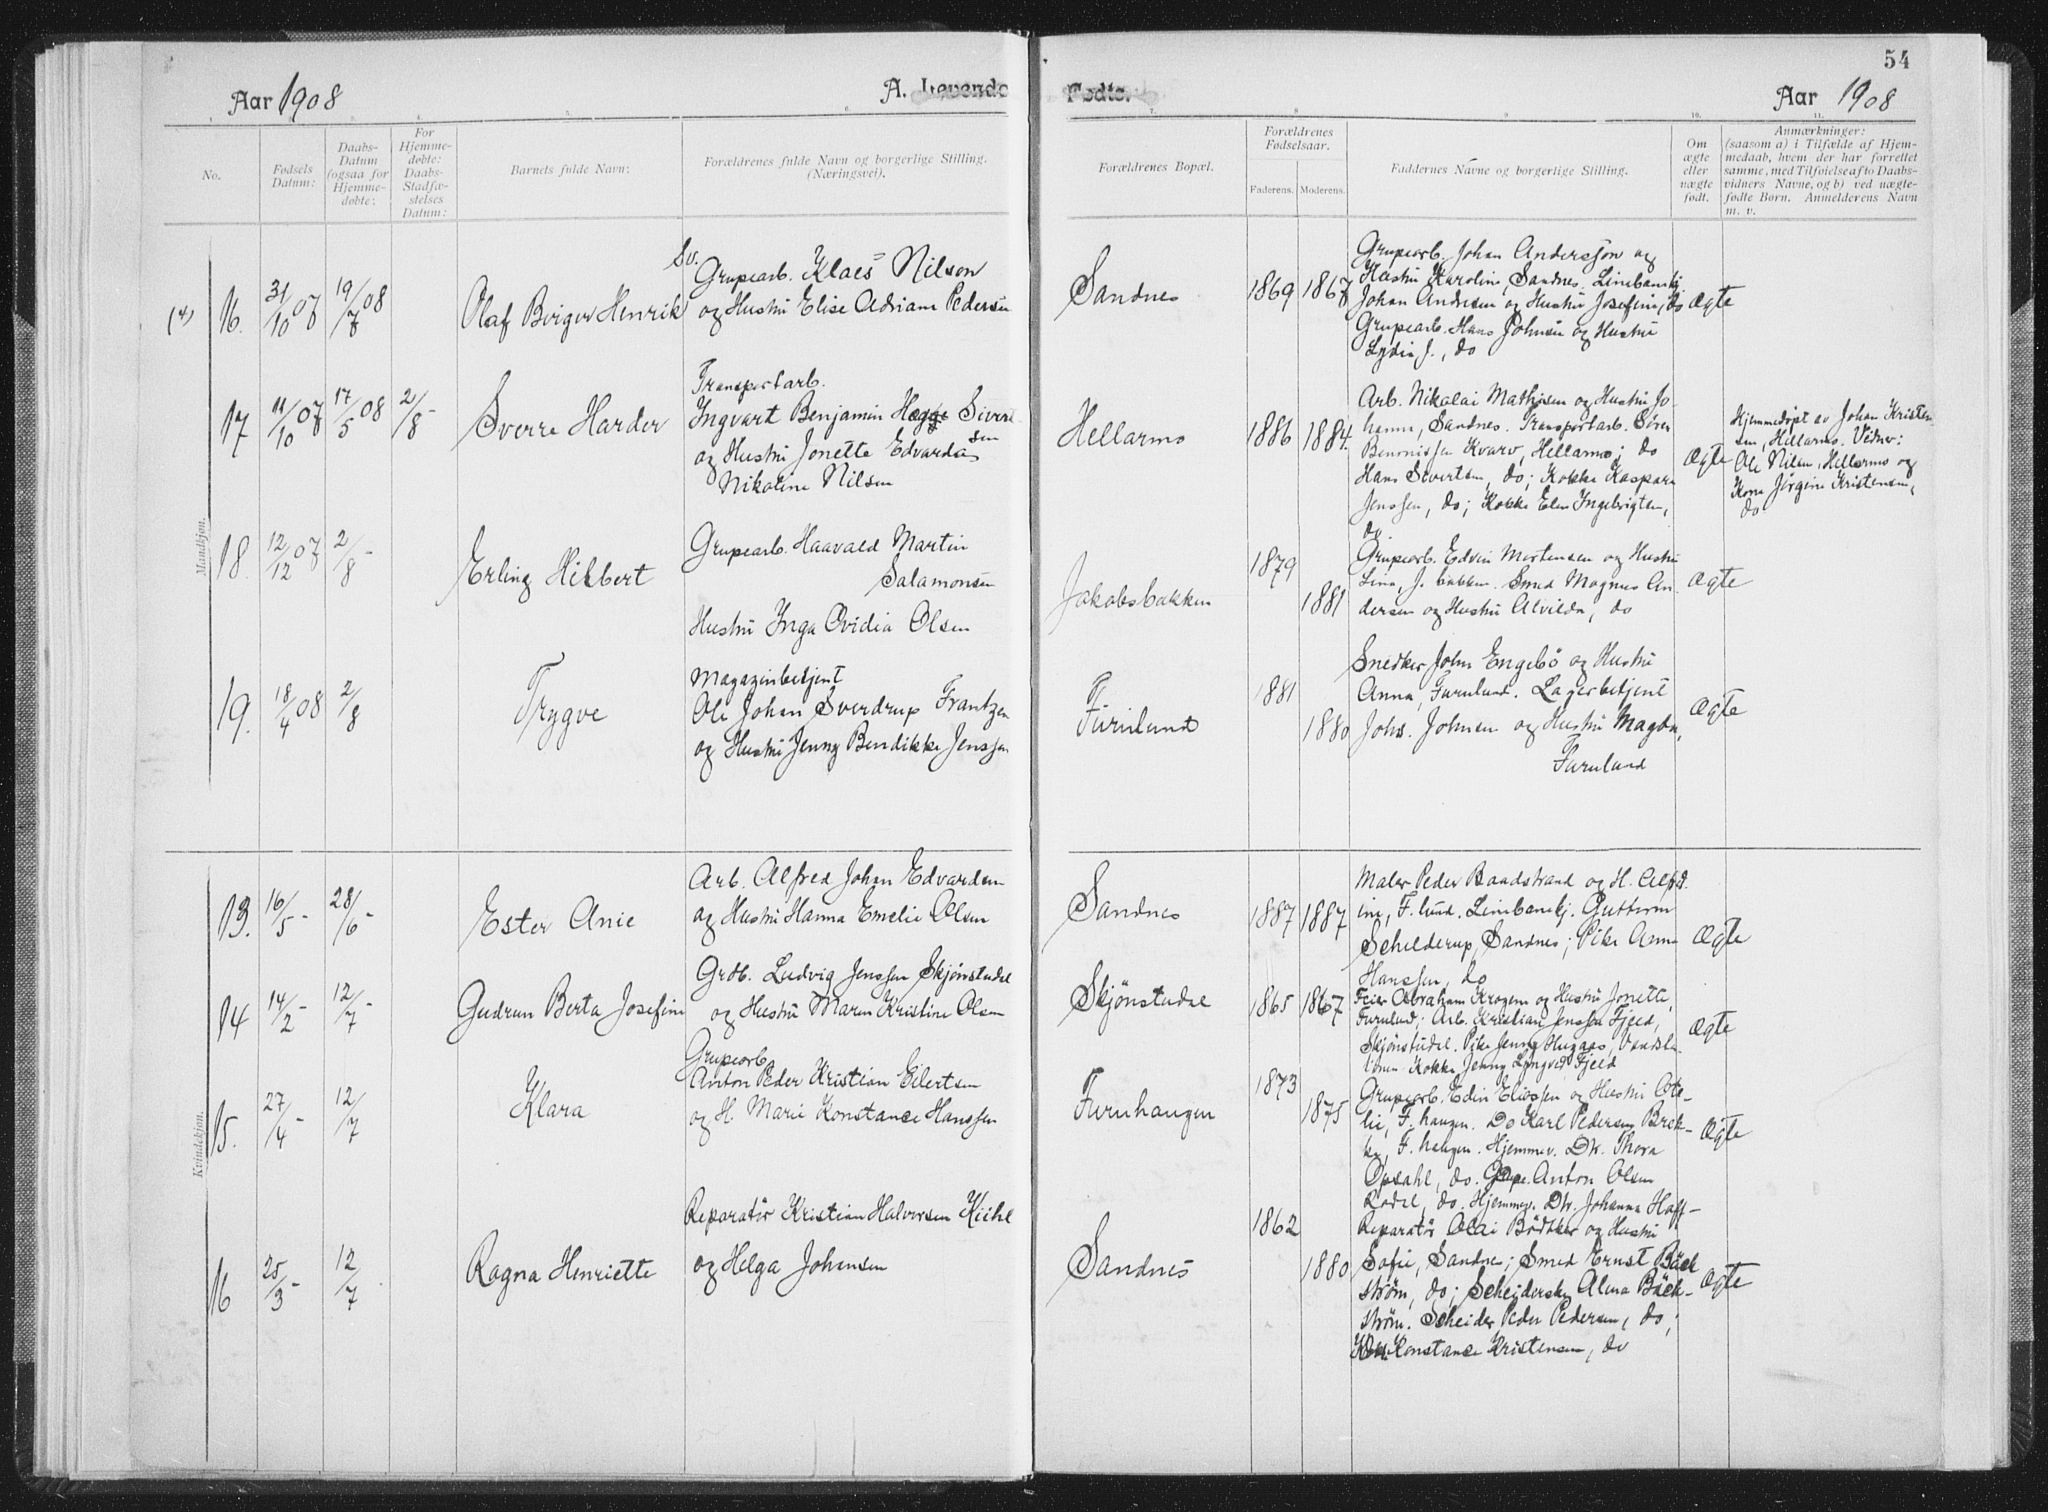 54
Aar 1908
A. Levende
Fødte.
Aar 1908
1. 5. 6. 7. 8. 9. 10. 11.
No.
Fødsels Datum:
Daabs-Datum (ogsaa for Hjemmedøbte:
For Hjemmedøbte: Daabs-Stadfæstelses Datum:
Barnets fulde Navn:
Forældrenes fulde Navn og borgerlige Stilling. (Næringsvei).
Forældrenes Bopæl.
Forældrenes Fødselsaar.
Faderens. Moderens.
Faddernes Navne og borgerlige Stilling.
Om ægte eller uægte født.
Anmærkninger: (saasom a) i Tilfælde af Hjemmedaab, hvem der har forrettet samme, med Tilføielse af to Daabsvidners Navne, og b) ved uægtefødte Børn. Anmelderens Navn m. v.
Mandkjøn.
16. 31/10 07 19/7 08
Olaf Birger Henrik
Sv.
Grupearb. Klaes Nilson
og Hustru Elise Adriane Pedersen
Sandnes
1869 1867
Grupearb. Johan Andersson og
Hustru Karoline, Sandnes. Linebanekj.
Johan Andresen og Hustru Josefine, do
Grupearb. Hans Johnsen og Hustru
Lydia J., do
Ægte
17 11/10 07 17/5 08 2/8 -
Sverre Harder
Transportarb.
Ingvart Benjamin Hegge Sivert
sen
og Hustru Jonette Edvarda
Nikoline Nilsen
Hellarmo
1886 1884.
Arb. Nikolai Mathisen og Hustru Jo-
hanna, Sandnes. Transportarb. Sören
Benonissen Kvarv, Hellarmo; do
Hans Sivertsen, do; Kokke Kaspara
Jenssen, do; Kokke Elen Ingebrigtsen,
do.
Ægte
Hjemmedöpt av Johan Kristen-
sen, Hellarmo. Vidner:
Ole Nilsen, Hellarmo og
Kona Jörgine Kristensen,
do
18. 12/12 07 2/8 -
Erling Hilbert
Grupearb. Haavald Martin
Salamonsen
Hustru Inga Ovidia Olsen
Jakobsbakken
1879
1881
Grupearb. Edvin Mortensen og Hustru
Lina, J. bakken. Smed Magnus An-
dersen og Hustru Alvilda, do
Ægte
19. 18/4 08 2/8
Trygve
Magazinbetjent
Ole Johan Sverdrup Frantzen
og Hustru Jenny Bendikke Jenssen
Furulund
1881
1880
Snedker John Engebö og Hustru
Anna, Furulund. Lagerbetjent
Johs. Johnsen og Hustru Magda,
Furulund
Ægte
Kvindekjøn.
13. 16/5 - 28/6 -
Ester Anie
Arb. Alfred Johan Edvardsen
og Hustru Hanna Emelie Olsen
Sandnes
1887 1887
Maler Peder Bandstrand og H. Alfrd.
ine, F. lund. Linebanekj. Guttorm
Schelderup, Sandnes; Pike Anna
Hanssen, do
Ægte
14 14/2 - 12/7 -
Gudrun Berta Josefine
Grdb. Ludvig Jenssen Skjönstudal
og Hustru Maren Kristine Olsen
Skjönstudal
1865 1867
Feier Abraham Krogem og Hustru Jonette,
Furulund; Arb. Kristian Jenssen Fjeld,
Skjönstudal. Pike Jenny Hugaas,
Kokke Jenny Lyngved Fjeld
Ægte
15. 27/4 12/7
Klara
Grupearb.
Anton Peder Kristian Eilertsen
og H. Marie Konstance Hanssen
Furuhaugen
1873
1875
Grupearb. Edin Eliassen og Hustru Ote-
lie, F. haugen. Do Karl Pedersen Brek-
ke, F. haugen. Hjemmev. Dtr. Thora
Opsahl, do. Anton Olsen
do. Hjemmev. Dtr. Johanna Hoff-
Ægte
16 25/3 - 12/7
Ragna Henriette
Reparatör Kristian Halvorsen Kiihl
og Helga Johansen
Sandnes
1862
1880
Reparatör Olai Bödtker og Hustru
Sofie, Sandnes; Smed Ernst Bäck
ström, do; Scheiderske Alma Bäck-
ström. Scheider Peder Pedersen, do;
Konstance Kristensen, do
Ægte